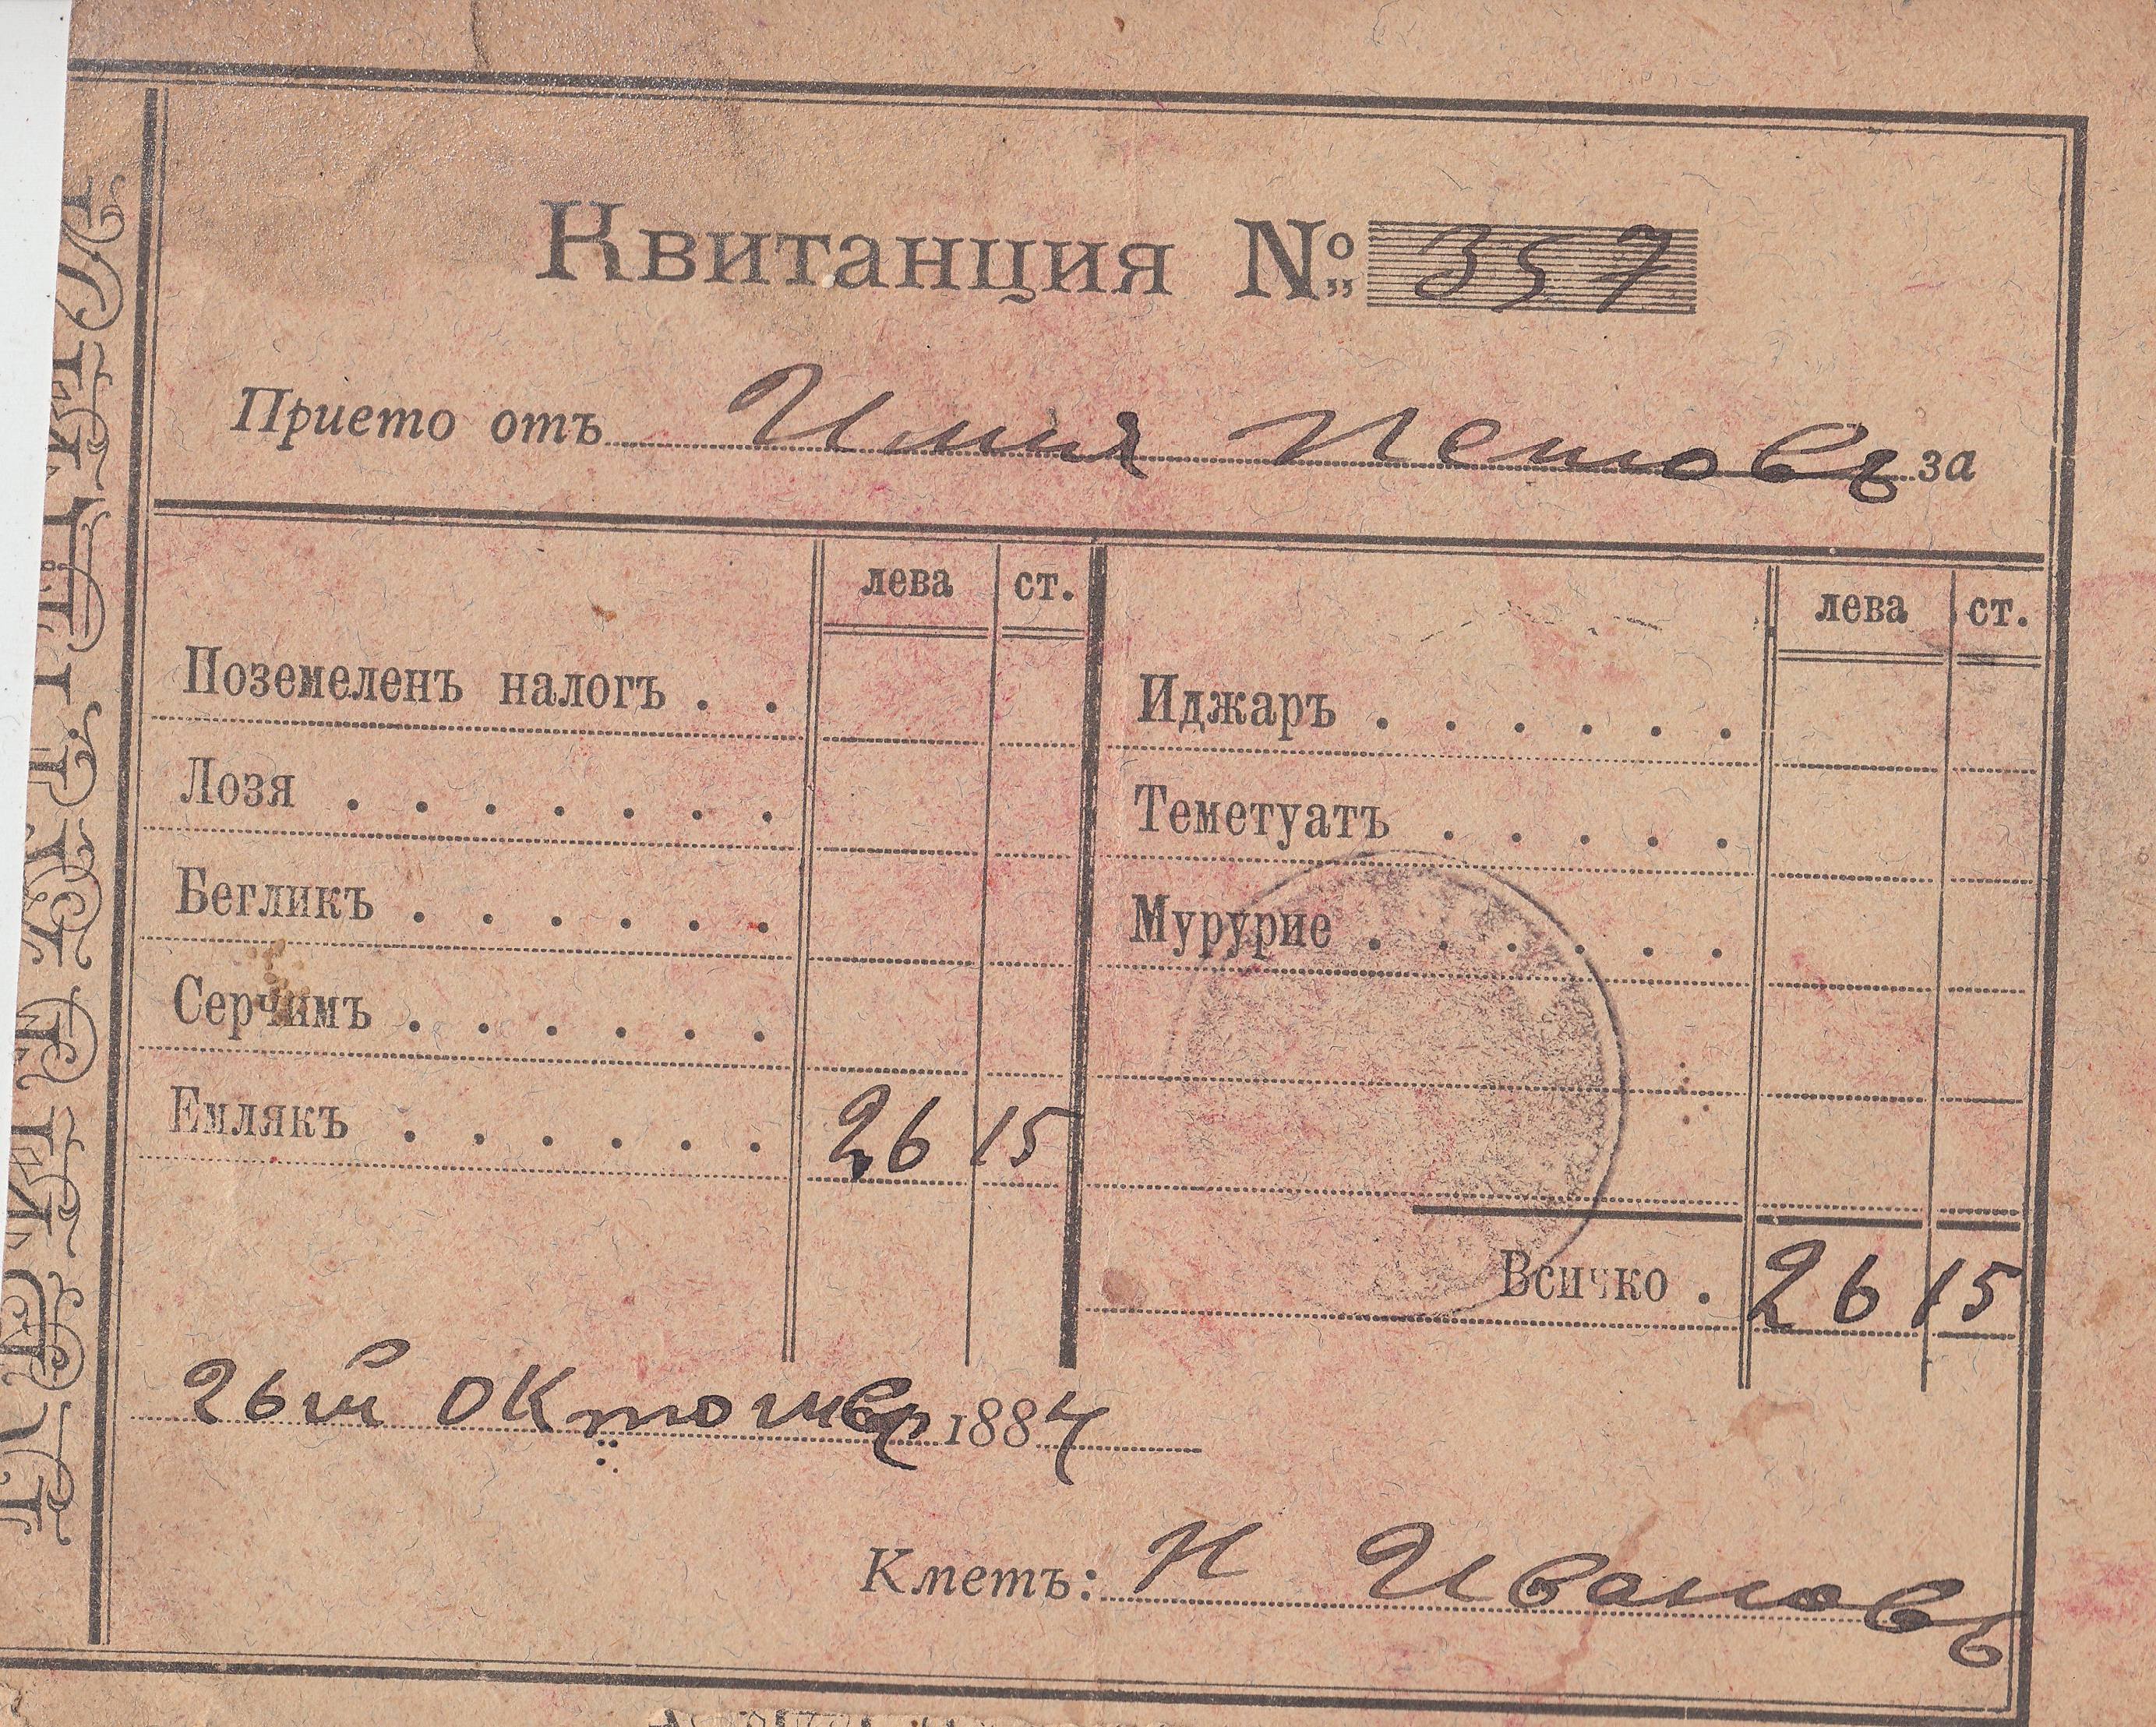 Квитанция №: 357
Прието отъ Илия Петовъ за
лева ст. лева ст.
Поземеленъ налогъ . . Иджаръ . . . . . .
Лозя . . . . . . . Теметуатъ . . . . .
Бегликъ . . . . . . Мурурие . . . . . .
Серчимъ . . . . . .
Емлякъ . . . . . . 26 15
Всичко . 26 15
26ий 1884
Кметъ: Н Ивановъ